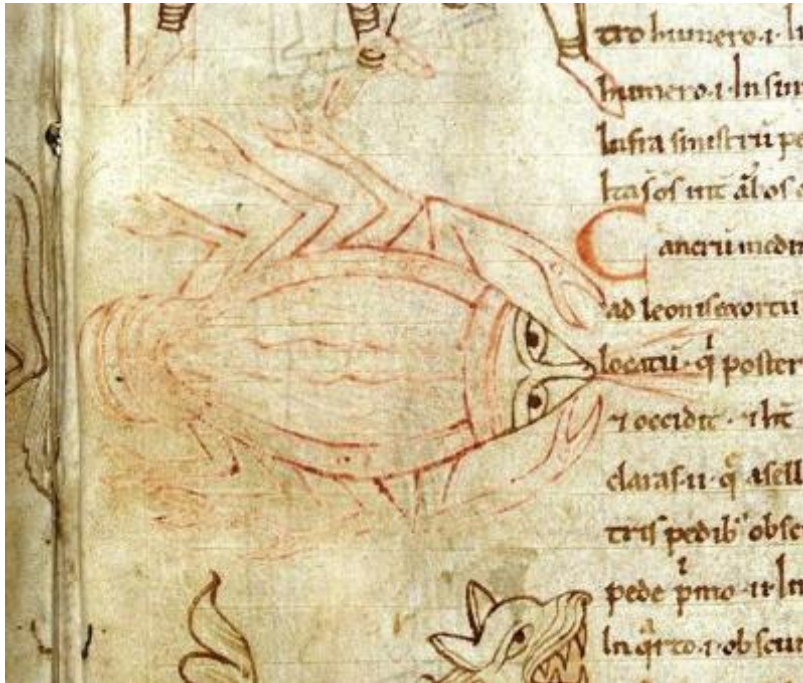 tro humero · i · In
humero · i · In sin
Infra sinistrū pe
Itaq; oṁs
Cancrū mediū
ad leonis exortū
locatū · qͥ poster
⁊ occidit ·
claras · ii · q̄ asell
tris pedib' obsc
pede pͥmo · ii · In
In qᵃrto · i · obscur